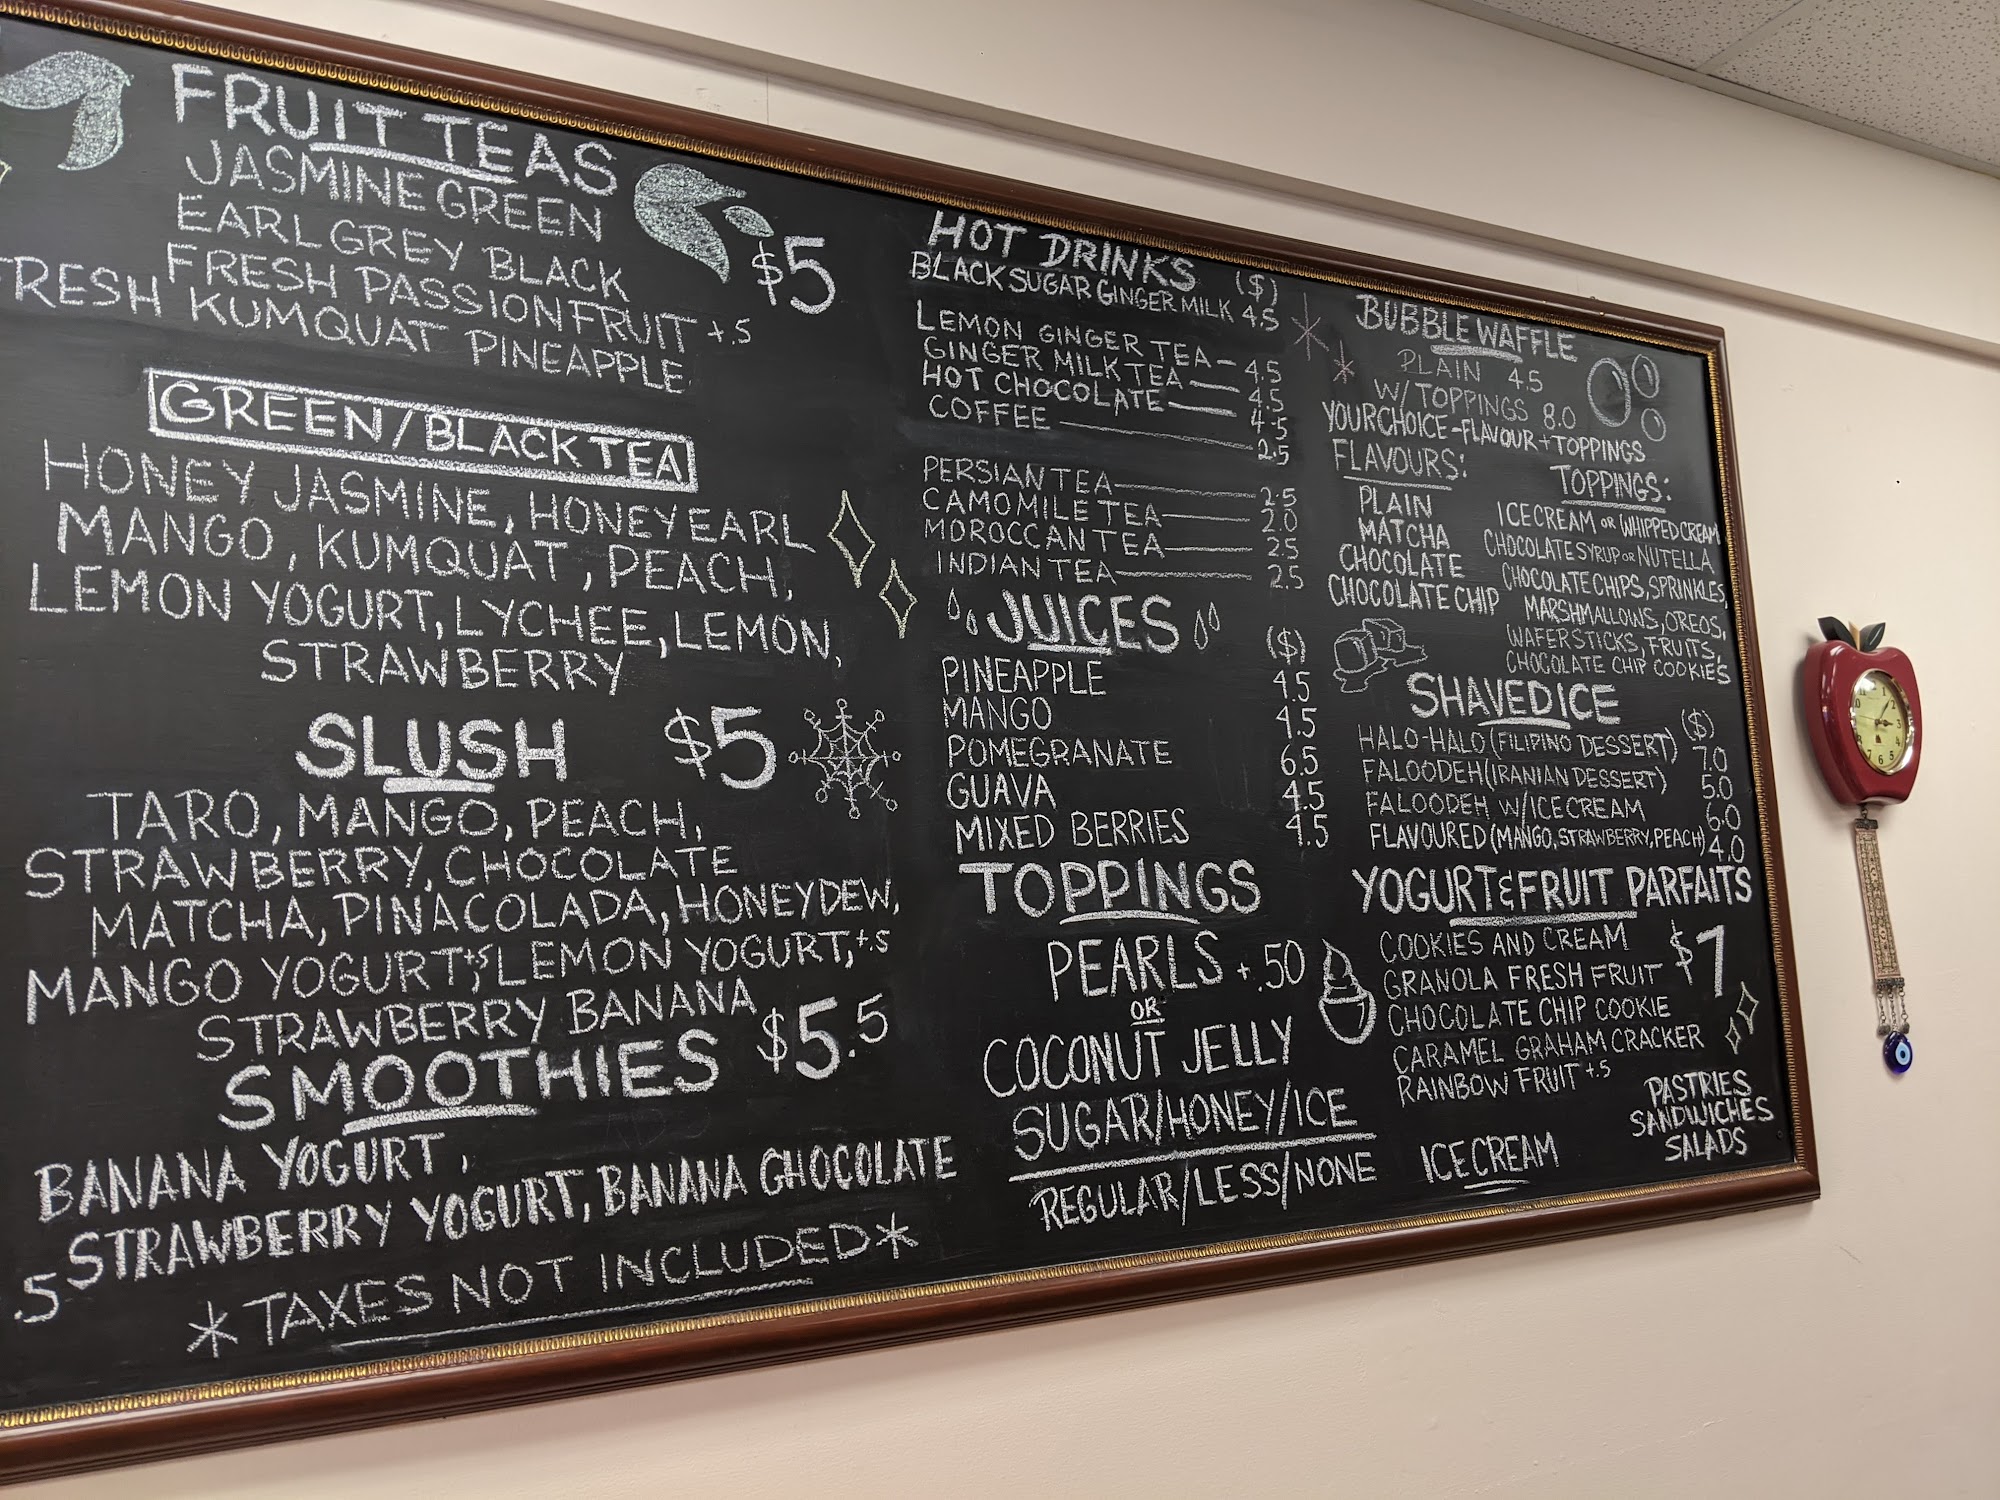 FRUIT TEAS
JASMINE GREEN
EARL GREY BLACK
FRESH PASSIONFRUIT +.5
FRESH KUMQUAT PINEAPPLE
$5
GREEN/BLACK TEA
HONEY JASMINE, HONEY EARL
MANGO, KUMQUAT, PEACH,
LEMON YOGURT, LYCHEE, LEMON,
STRAWBERRY
SLUSH $5
TARO, MANGO, PEACH,
STRAWBERRY, CHOCOLATE
MATCHA, PINACOLADA, HONEYDEW,
MANGO YOGURT,+.5 LEMON YOGURT,+.5
STRAWBERRY BANANA
SMOOTHIES $5.5
BANANA YOGURT,
STRAWBERRY YOGURT, BANANA CHOCOLATE
.5
*TAXES NOT INCLUDED*
HOT DRINKS ($)
BLACK SUGAR GINGER MILK 4.5
LEMON GINGER TEA 4.5
GINGER MILK TEA 4.5
HOT CHOCOLATE 4.5
COFFEE 2.5
PERSIAN TEA 2.5
CAMOMILE TEA 2.0
MOROCCAN TEA 2.5
INDIAN TEA 2.5
JUICES ($)
PINEAPPLE 4.5
MANGO 4.5
POMEGRANATE 6.5
GUAVA 4.5
MIXED BERRIES 4.5
TOPPINGS
PEARLS +.50
OR
COCONUT JELLY
SUGAR/HONEY/ICE
REGULAR/LESS/NONE
BUBBLE WAFFLE
PLAIN 4.5
W/TOPPINGS 8.0
YOUR CHOICE-FLAVOUR+TOPPINGS
FLAVOURS:
PLAIN
MATCHA
CHOCOLATE
CHOCOLATE CHIP
TOPPINGS:
ICE CREAM OR WHIPPED CREAM
CHOCOLATE SYRUP OR NUTELLA
CHOCOLATE CHIPS, SPRINKLES,
MARSHMALLOWS, OREOS,
WAFER STICKS, FRUITS,
CHOCOLATE CHIP COOKIES
SHAVED ICE ($)
HALO-HALO (FILIPINO DESSERT) 7.0
FALOODEH (IRANIAN DESSERT) 5.0
FALOODEH W/ICE CREAM 6.0
FLAVOURED (MANGO, STRAWBERRY, PEACH) 4.0
YOGURT & FRUIT PARFAITS
COOKIES AND CREAM $7
GRANOLA FRESH FRUIT
CHOCOLATE CHIP COOKIE
CARAMEL GRAHAM CRACKER
RAINBOW FRUIT +.5
ICE CREAM
PASTRIES
SANDWICHES
SALADS